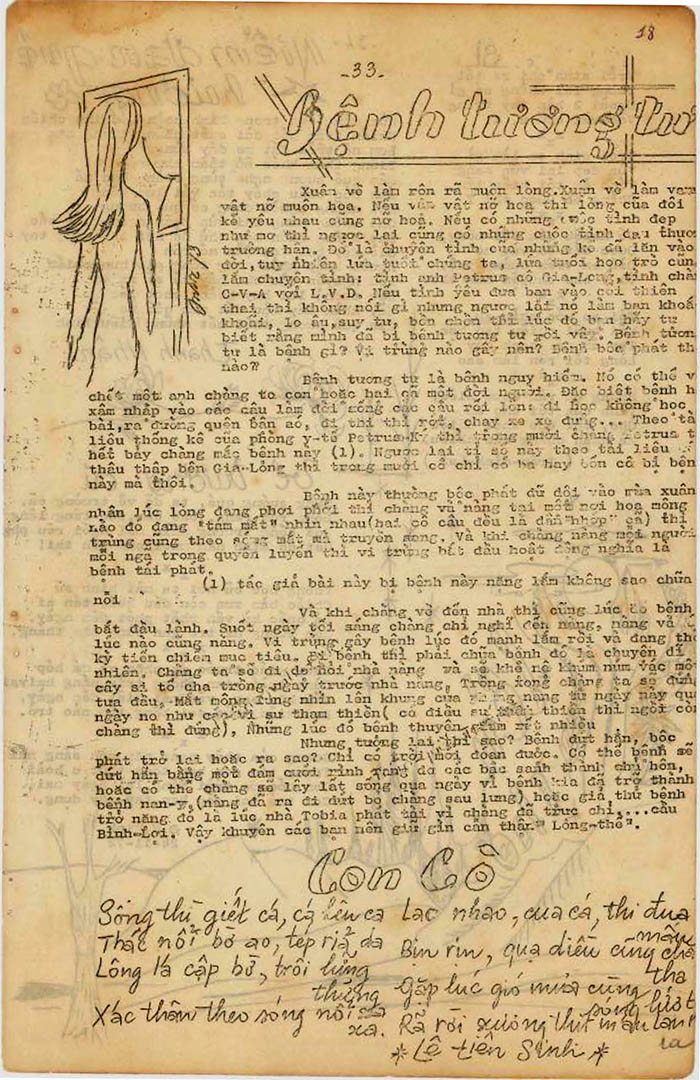 18
-33-
Bệnh tương tư
Xuân về làm rộn rã muôn lòng. Xuân về làm vạn
vật nở muôn hoa. Nếu vạn vật nở hoa thì lòng của đôi
kẻ yêu nhau cũng nở hoa. Nếu có những cuộc tình đẹp
như mơ thì ngược lại cũng có những cuộc tình đau thươ
trường hận. Đó là chuyện tình của những kẻ đã lăn vào
đời, tuy nhiên lứa tuổi chúng ta, lứa tuổi học trò cũn
lắm chuyện tình: tình anh Petrus cô Gia-Long, tình chàn
C-V-A với L.V.D. Nếu tình yêu đưa bạn vào cõi thiên
thai thì không nói gì nhưng ngược lại nó làm bạn khoắ
khoải, lo âu, suy tư, bồn chồn thì lúc đó bạn hãy tự
biết rằng mình đã bị bệnh tương tư rồi vậy. Bệnh tươn
tư là bệnh gì? Vi trùng nào gây nên? Bệnh bộc phát th
nào?
Bệnh tương tư là bệnh nguy hiểm. Nó có thể v
chết một anh chàng to con hoặc hai cả một đời người. Đặc biệt bệnh h
xâm nhập vào các cậu làm đời sống các cậu rối lên: đi học không học
bài, ra đường quên bận áo, đi thi thì rớt, chạy xe xe đụng... Theo tà
liệu thống kê của phòng y-tế Petrus-Ký thì trong mười chàng Petrus t
hết bảy chàng mắc bệnh này (1). Ngược lại tỉ số này theo tài liệu
thâu thập bên Gia-Long thì trong mười cô chỉ có ba hay bốn cô bị bện
này mà thôi.
Bệnh này thường bộc phát dữ dội vào mùa xuân
nhân lúc lòng đang phơi phới thì chàng và nàng tại một nơi hoa mộng
nào đó đang "tám mắt" nhìn nhau (hai cô cậu đều là dân "hhợp" cả) thì
trùng cũng theo sóng mắt mà truyền sang. Và khi chàng nàng mỗi người
mỗi ngả trong quyến luyến thì vi trùng bắt đầu hoạt động nghĩa là
bệnh tái phát.
(1) tác giả bài này bị bệnh này nặng lắm không sao chữa
nổi
Và khi chàng về đến nhà thì cũng lúc đó bệnh
bắt đầu lành. Suốt ngày tối sáng chàng chỉ nghĩ đến nàng, nàng và
lúc nào cũng nàng. Vi trùng gây bệnh lúc đó mạnh lắm rồi và đang th
kỳ tiến chiếm mục tiêu. Bị bệnh thì phải chữa bệnh đó là chuyện dĩ
nhiên. Chàng ta sẽ đi dò hỏi nhà nàng và sẽ khệ nệ khúm núm vác mộ
cây si tổ chả trồng ngay trước nhà nàng. Trồng xong chàng ta sẽ đứn
tựa đầu, mắt mông lung nhìn lên khung của phòng nàng từ ngày này qu
ngày nọ như các vị sư tham thiền (có điều sư tham thiền thì ngồi còn
chàng thì đứng), Những lúc đó bệnh thuyên giảm rất nhiều
Nhưng, tương lai thì sao? Bệnh dứt hẳn, bộc
phát trở lại hoặc ra sao? Chỉ có trời mới đoán được. Có thể bệnh sẽ
dứt hẳn bằng một đám cưới rình rang do các bậc sanh thành chủ hôn,
hoặc có thể chàng sẽ lây lất sống qua ngày vì bệnh kia đã trở thành
bệnh nan-y, (nàng đá ra đi dứt bỏ chàng sau lưng) hoặc giả thử bệnh
trở nặng đó là lúc nhà Tobia phát tài vì chàng đã trực chỉ,...cầu
Bình-Lợi. Vậy khuyên các bạn nên giữ gìn cẩn thận "Long-thể".
Con Cò
Sống thì giết cá, cá lên ca
Thác nổi bờ ao, tép rỉa da
Lông lá cập bờ, trôi lửng
thửng
Xác thân theo sóng nổi
xa.
Lao nhao, cua cá, thi đua
mầu
Bịn rịn, quạ diều cũng
tha
Gặp lúc gió mưa cùng
sóng lướt
Rã rời xương thịt máu lan
ra
* Lê tiên Sinh *